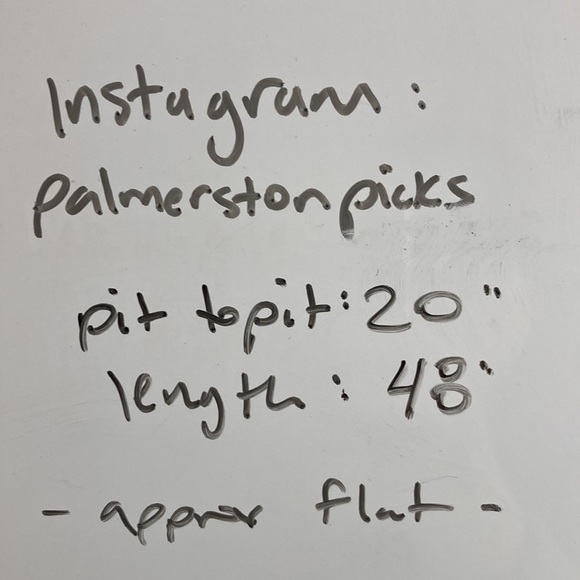 Instagram:
palmerstonpicks
pit to pit: 20"
length: 48"
- approx flat -